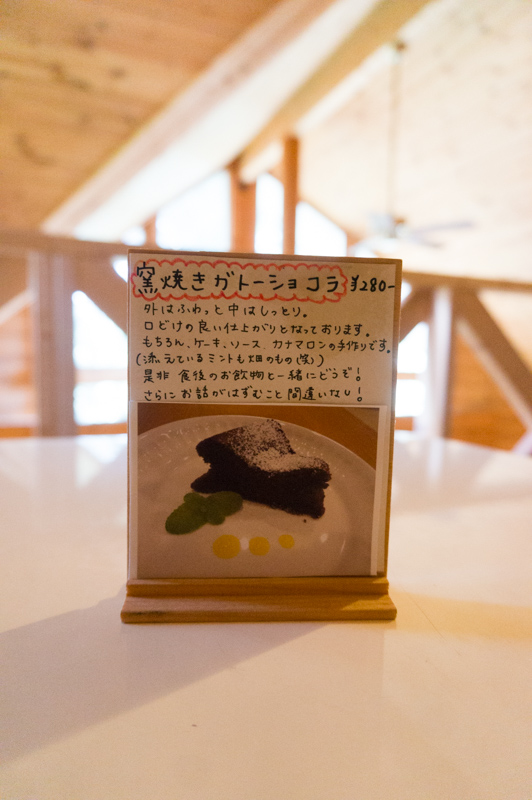 窯焼きガトーショコラ ¥280-
外はふわっと中はしっとり。
口どけの良い仕上がりとなっております。
もちろん、ケーキ、ソース、カナマロンの手作りです。
(添えているミントも畑のもの(笑))
是非 食後のお飲物と一緒にどうぞ!
さらにお話がはずむこと間違いなし!